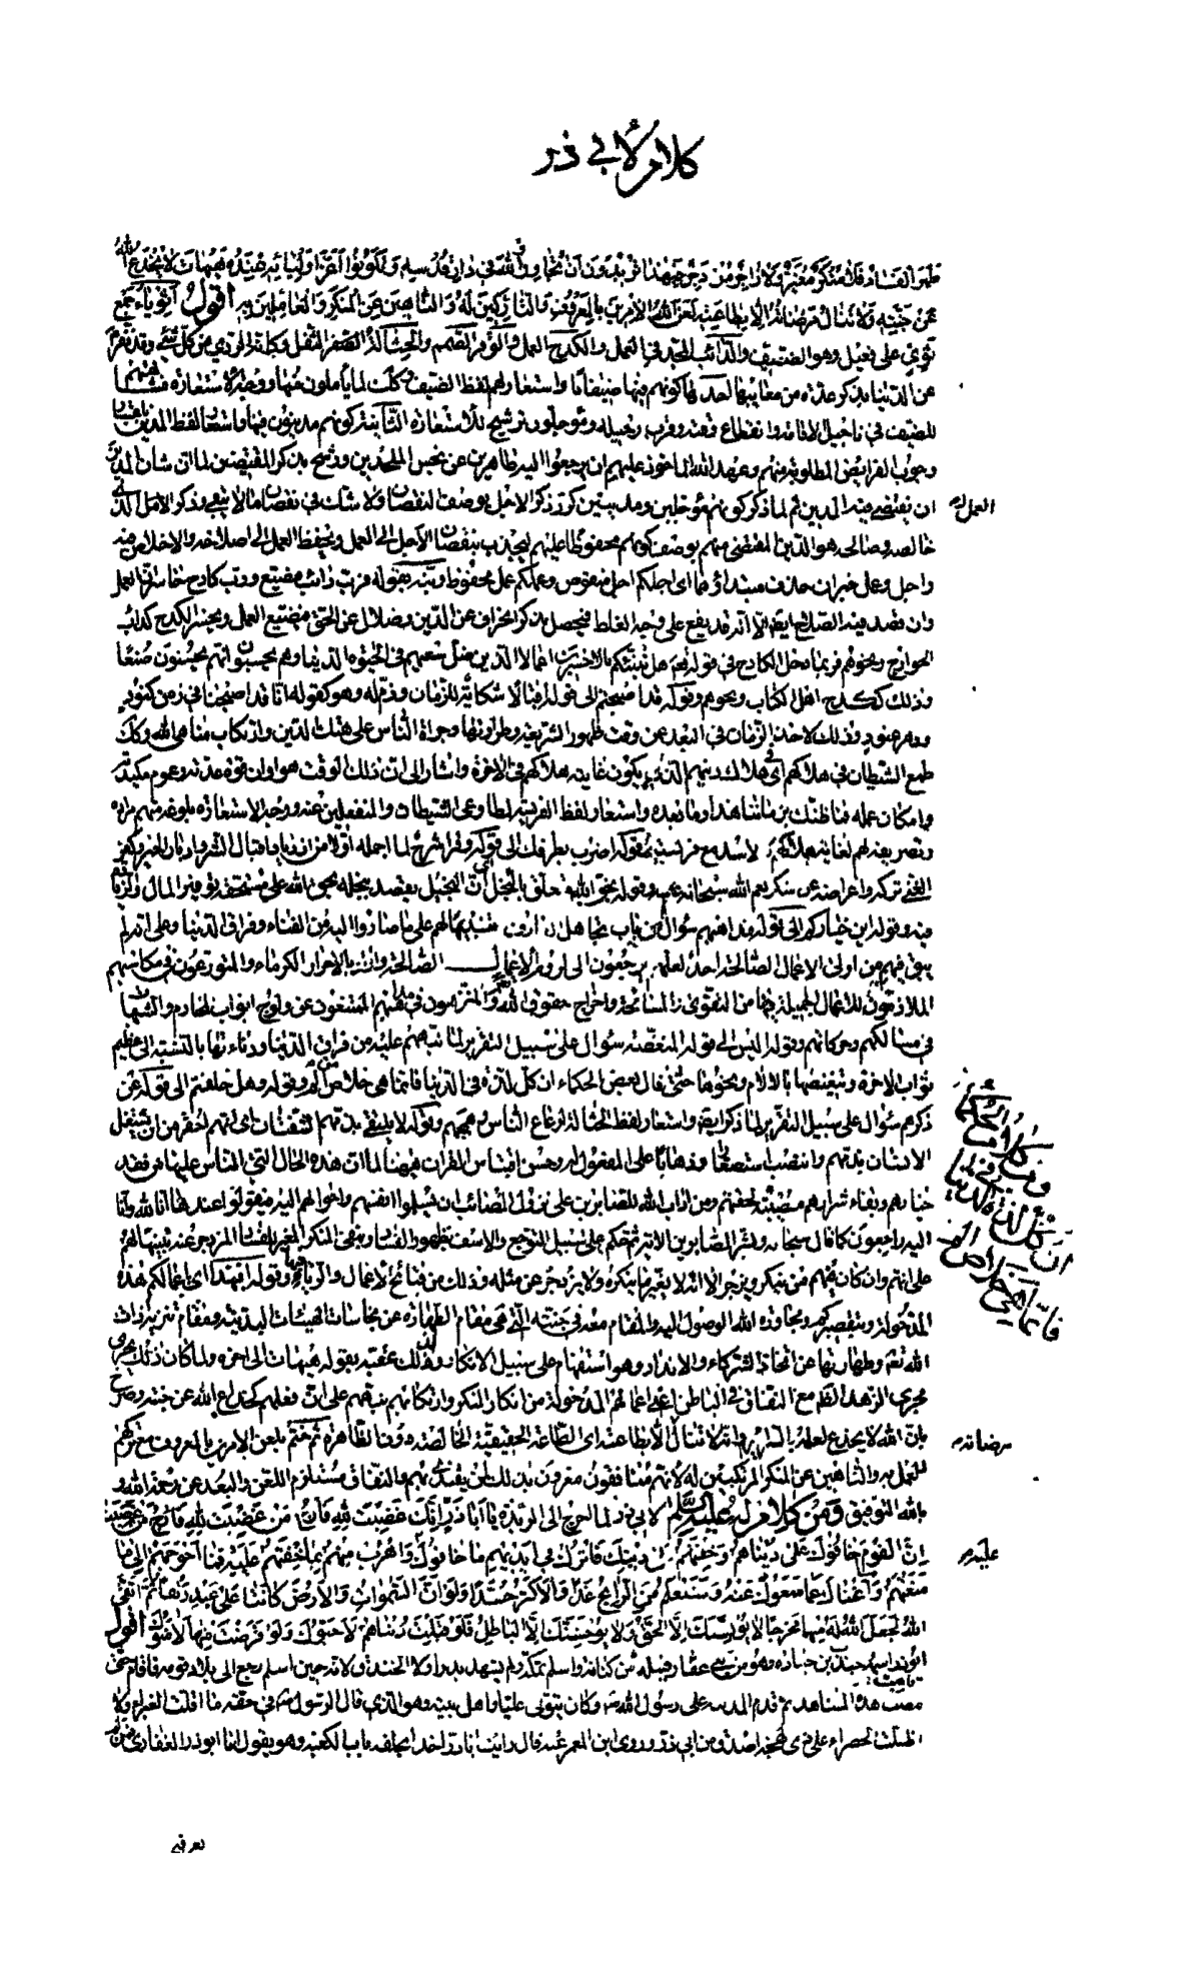 كلام لأبي ذر
ظهر الفساد فلا منكر مغير ولا زاجر مزدجر أفبهذا تريدون أن تجاوروا الله في دار قدسه وتكونوا أعز أوليائه عنده هيهات لا يخدع الله
عن جنته ولا تنال مرضاته إلا بطاعته لعن الله الآمرين بالمعروف والتاركين له والناهين عن المنكر والعاملين به أقول أثوياء جمع
ثوي على فعيل وهو الضيف والدائب المجد في العمل والكدح العمل والحثالة الثفل وكأنه الردي من كل شيء وقد نفر
عن الدنيا بذكر عدة من معايبها أحدها كونهم فيها ضيفانا واستعار لهم لفظ الضيف وكذلك ما يأملون منها ووجه الاستعارة مشابهتهم
للضيف في تأجيل الإقامة وانقطاع وقته وقرب رحيله ومؤجلون ترشيح للاستعارة الثانية كونهم مدينون فيها واستعار لفظ المدين باعتبار
وجوب الفرايض المطلوبة منهم وعهد الله المأخوذ عليهم أن يرجعوا إليه طاهرين عن نجس الملحدين ورشح بذكر المقتضين لما أن شأن المدين
أن يقتضى فيه الدين ثم لما ذكر كونهم مؤجلين ومدينين كرر ذكر الأجل بوصف النقصان ولا شك في نقصان ما لا يبقى وذكر العمل الذي
العمل
خالصه وصالحه هو الدين المقتضى منهم بوصف كونه محفوظا عليهم ليجذب بنقصان الأجل إلى العمل وبحفظ العمل إلى إصلاحه والإخلاص فيه
وأجل وعمل خبران حذف مبتدأؤهما أي أجلكم أجل منقوص وعملكم عمل محفوظ ونبه بقوله فرب دائب مضيع ورب كادح خاسر أن العمل
وإن قصد فيه الصلاح أيضا إلا أنه قد يقع على وجه الغلط فيحصل بذكر انحراف عن الدين وضلال عن الحق فيضيع العمل ويخسر الكدح كدأب
الخوارج ونحوهم فربما دخل الكادح في قوله تعالى هل ننبئكم بالأخسرين أعمالا الذين ضل سعيهم في الحيوة الدنيا وهم يحسبون أنهم يحسنون صنعا
وذلك ككدح أهل الكتاب ونحوهم وقوله قد أصبحتم إلى قوله إقبالا شكاية للزمان وذم له وهو كقوله أنا قد أصبحنا في زمن كنود
ودهر عنود وذلك لأخذ الزمان في البعد عن وقت ظهور الشريعة وطراوتها وجرأة الناس على هتك الدين وارتكاب مناهي الله وكذلك
طمع الشيطان في هلاكهم أي في هلاك دينهم الذي يكون غايته هلاكهم في الآخرة وأشار إلى أن ذلك الوقت هو أوان قوة عدته وعموم مكيدته
وإمكان عمله فما ظنك بزماننا هذا وما بعده واستعار لفظ الفريسة لمطاوعي الشيطان والمنفعلين عنه ووجه الاستعارة بلوغه منهم مراده
وتصريفه لهم لغاية هلاكهم كالأسد مع فريسته وقوله اضرب بطرفك إلى قوله وقرا شرح لما أجمله أولا من ازدياد إقبال الشر وإدبار الخير كفر
الغني تركه وإعراضه عن شكر نعم الله سبحانه عليه وقوله بحق الله متعلق بالبخل أي أن البخيل يقصد ببخله بحق الله على مستحقه توفير المال
منه وقوله أين خياركم إلى قوله مذاهبهم سؤال من باب تجاهل العارف تنبيها لهم على ما صاروا إليه من الفناء وفراق الدنيا وعلى أنه لم
يبق فيهم من أولي الأعمال الصالحة أحد لعلهم يرجعون إلى لزوم الأعمال الصالحة وأراد بالأحرار الكرماء والمتورعون في مكاسبهم
الملازمون للأعمال الجميلة فيها من التقوى والمسامحة وإخراج حقوق الله والمتنزهون في مذاهبهم الممتنعون عن ولوج أبواب المحارم والشبهات
في مسالكهم وحركاتهم وقوله أليس إلى قوله المنغصة سؤال على سبيل التقرير لما نبههم عليه من فراق الدنيا ودناءتها بالنسبة إلى عظيم
ثواب الآخرة وتنغيصها بالآلام ونحوها حتى قال بعض الحكماء إن كل لذة في الدنيا فإنما هي خلاص من ألم وقوله وهل خلقتم إلى قوله عن
ومن كلام الحكماء في الدنيا أن كل لذة في الدنيا فإنما هي خلاص من ألم
ذكرهم سؤال على سبيل التقرير لما ذكر أيضا واستعار لفظ الحثالة لرعاع الناس وهمجهم وقوله لا يلتقي بذمهم الشفتان أي أنهم أحقر من أن يشتغل
الإنسان بذمهم وانتصب استصغارا وذهابا على المفعول له وحسن اقتباس القرآن هيهنا لما أن هذه الحال التي الناس عليها من فقد
خيارهم وبقاء شرارهم مصيبة لحقتهم ومن آداب الله للصابرين على نزول المصائب أن يسلموا أنفسهم وأحوالهم إليه فيقولوا عندها إنا لله وإنا
إليه راجعون كما قال سبحانه وبشر الصابرين الآية ثم حكم على سبيل التوجع والأسف بظهور الفساد ونفي المنكر المغير للفساد المزدجر عنه تنبيها لهم
على أنهم وإن كان فيهم من ينكر ويزجر إلا أنه لا يغير ما ينكره ولا يزدجر عن مثله وذلك من قبائح الأعمال والرياء فيها وقوله أفبهذا أي أعمالكم هذه
المدخولة وبتقصيركم ومجاورة الله الوصول إليه والمقام معه في جنته التي هي مقام الطهارة عن نجاسات الهيئات البدنية ومقام تنزيه ذات
الله تعالى وطهارتها عن اتخاذ الشركاء والأنداد وهو استفهام على سبيل الإنكار ولذلك عقبه بقوله هيهات إلى آخره ولما كان ذلك يجري
مجرى الزهد الظاهر مع النفاق في الباطن أعني أعمالهم المدخولة من إنكار المنكر وارتكابهم نبههم على أن فعلهم كخداع الله عن جنته وصرح
بأن الله لا يخدع لعلمه بالسرائر وأنه لا تنال إلا بطاعته أي الطاعة الحقيقية الخالصة دون الظاهرة ثم ختم بلعن الآمرين بالمعروف مع تركهم
مرضاته
للعمل به والناهين عن المنكر المرتكبين له لأنهم منافقون مغرون بذلك لمن يقتدي بهم والنفاق مستلزم اللعن والبعد عن رحمة الله و
بالله التوفيق ومن كلام له عليه السلم لأبي ذر لما أخرج إلى الربذة يا أبا ذر إنك غضبت لله فارج من غضبت
إن القوم خافوك على دنياهم وخفتهم على دينك فاترك في أيديهم ما خافوك عليه واهرب منهم بما خفتهم عليه فما أحوجهم إلى ما
عليه
منعتهم وأغناك عما منعوك وستعلم من الرابح غدا والأكثر حسدا ولو أن السموات والأرض كانتا على عبد رتقا ثم اتقى
الله لجعل الله له منهما مخرجا لا يؤنسنك إلا الحق ولا يوحشنك إلا الباطل فلو قبلت دنياهم لأحبوك ولو قرضت منها لأمنوك أقول
أبو ذر اسمه جندب بن جنادة وهو من بني غفار قبيلة من كنانة وأسلم بمكة ولم يشهد بدرا ولا الخندق لأنه حين أسلم رجع إلى بلاد قومه فأقام حتى
مضت هذه المشاهد ثم قدم المدينة على رسول الله وكان يتولى عليا وأهل بيته وهو الذي قال الرسول في حقه ما أقلت الغبراء ولا
أظلت الخضراء على ذي لهجة أصدق من أبي ذر وروى ابن المعمر عنه قال رأيت أبا ذر آخذا بحلقة باب الكعبة وهو يقول أنا أبو ذر الغفاري